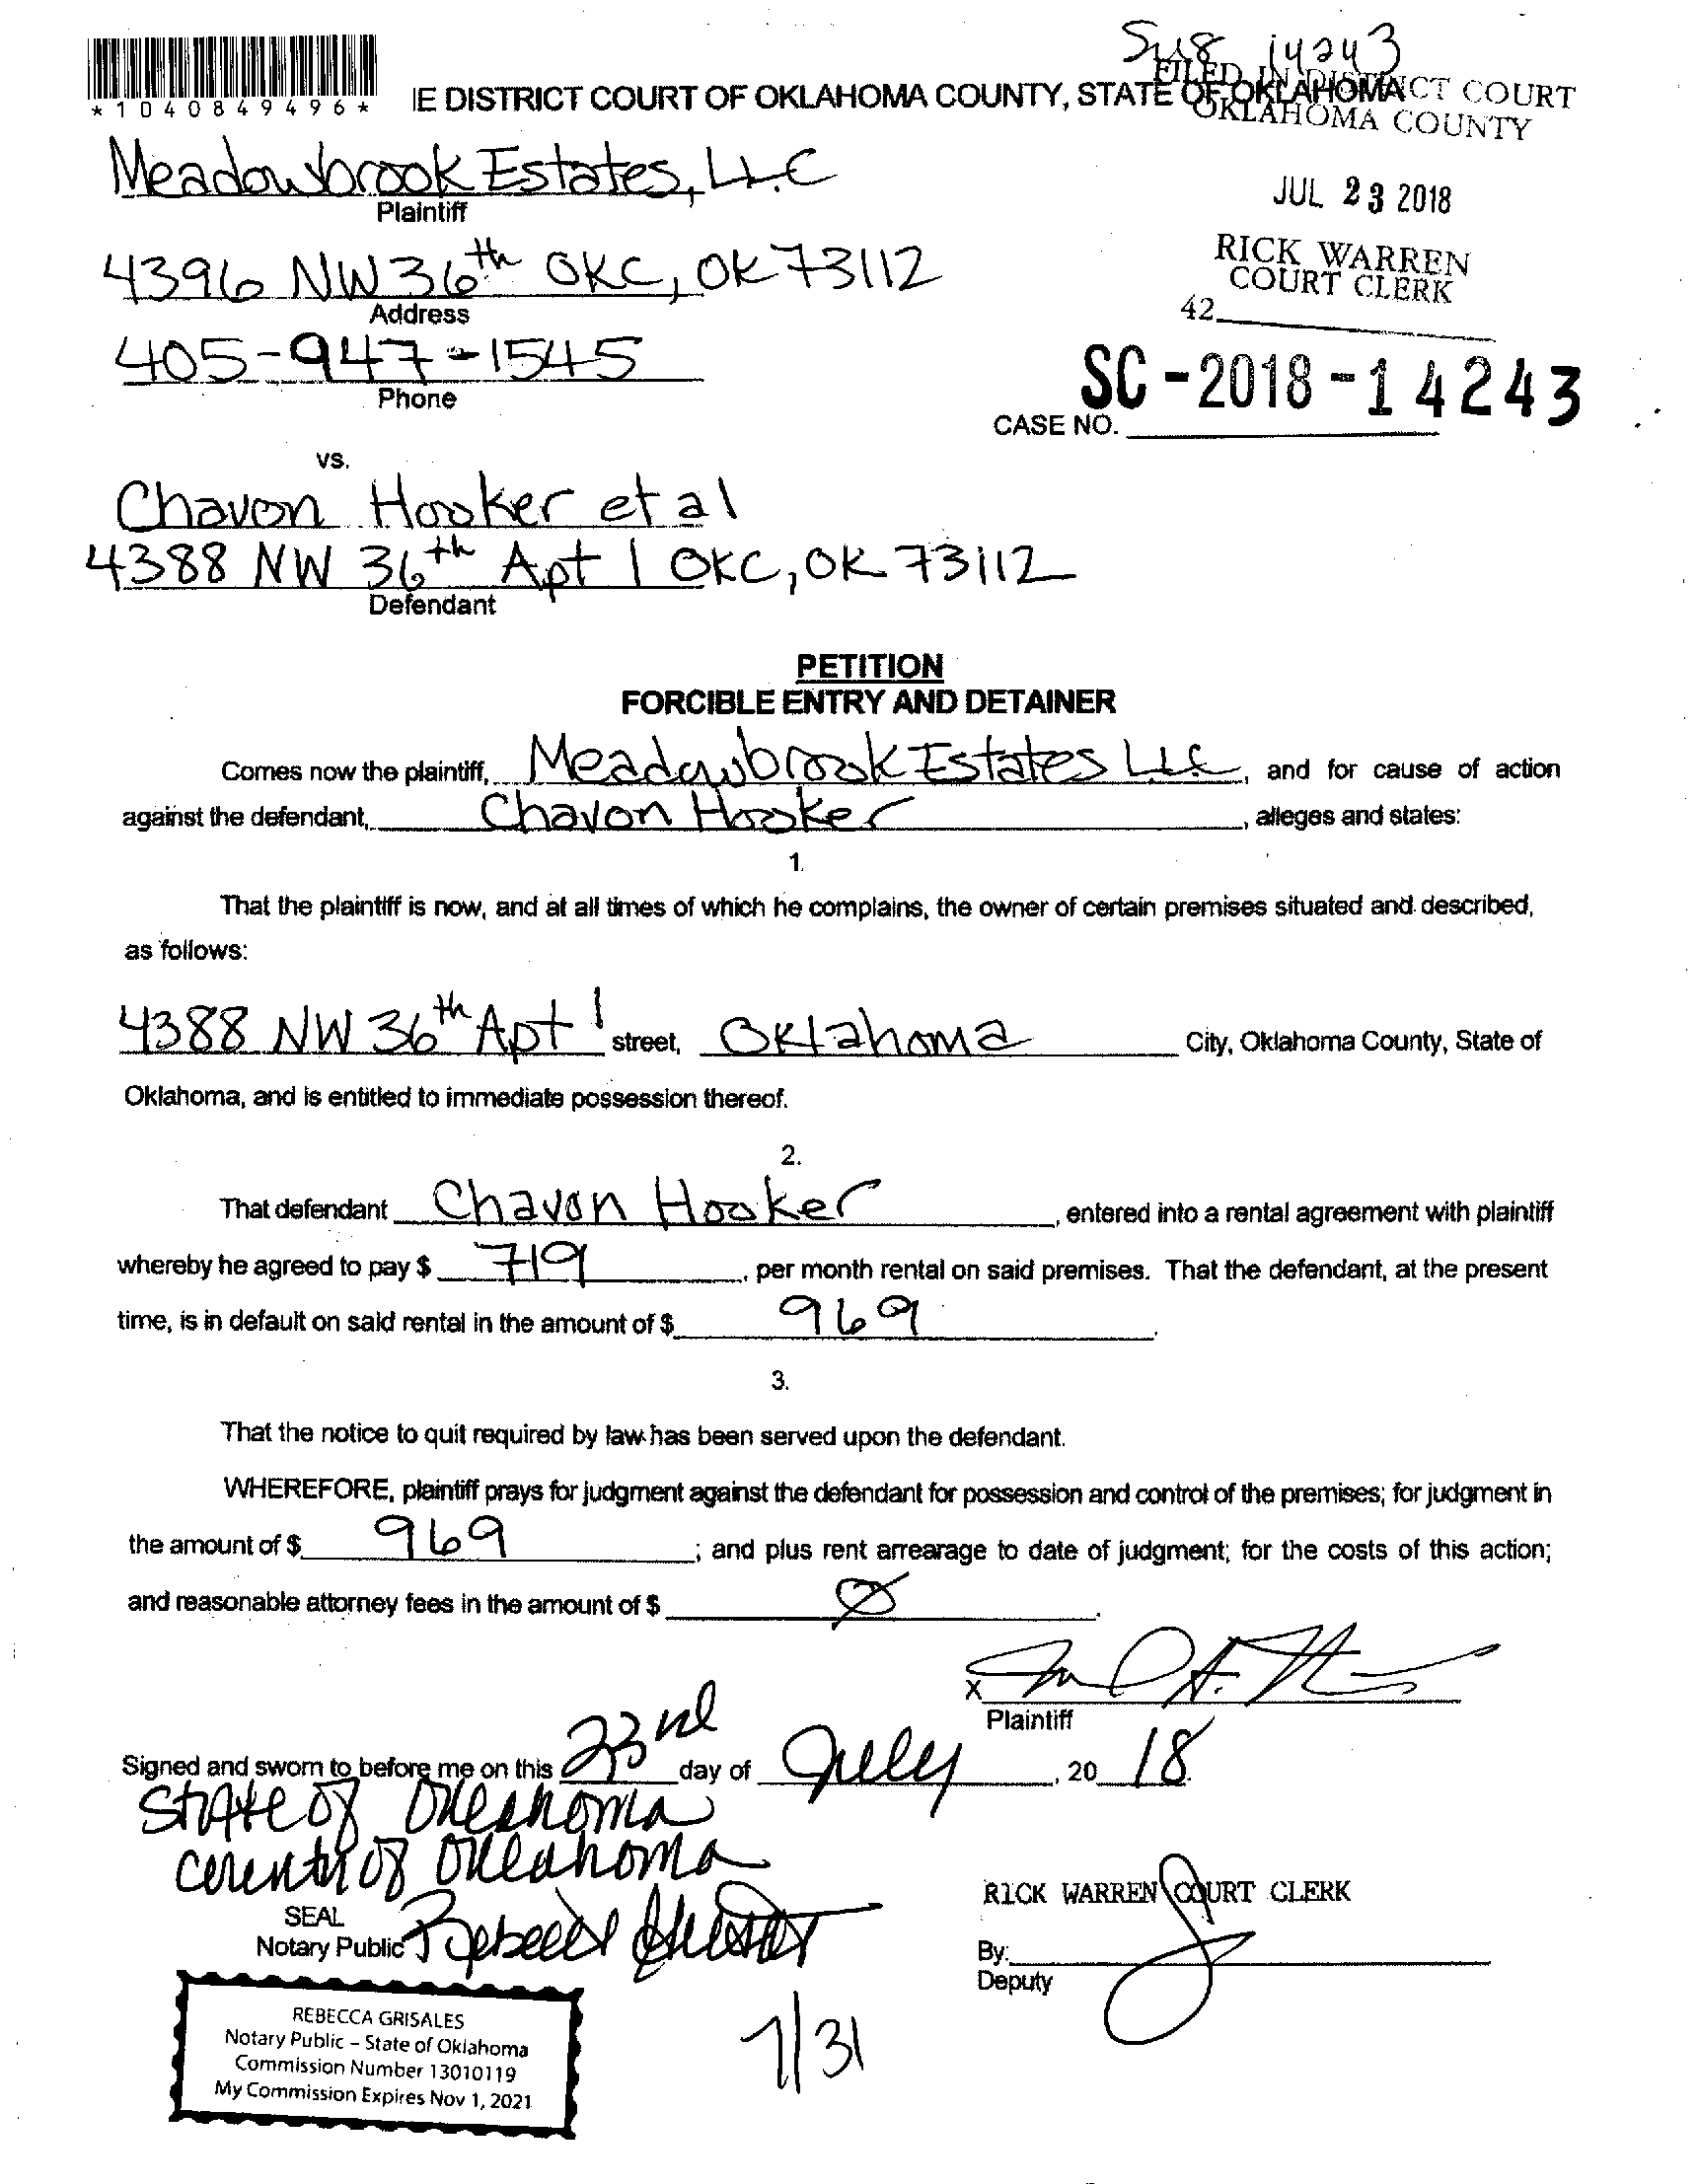 14243
FILED IN DISTRICT COURT
OKLAHOMA COUNTY
*1040849496*
IE DISTRICT COURT OF OKLAHOMA COUNTY, STATE OF OKLAHOMA
Meadowbrook Estates, LLC
Plaintiff
JUL 23 2018
4396 NW 36th OKC, OK 73112
Address
RICK WARREN
COURT CLERK
42
405-947-1545
Phone
SC-2018-14243
CASE NO.
vs.
Chavon Hooker et al
4388 NW 36th Apt 1 OKC, OK 73112
Defendant
PETITION
FORCIBLE ENTRY AND DETAINER
Comes now the plaintiff, Meadowbrook Estates LLC, and for cause of action
against the defendant, Chavon Hooker, alleges and states:
1.
That the plaintiff is now, and at all times of which he complains, the owner of certain premises situated and described,
as follows:
4388 NW 36th Apt 1 street, Oklahoma City, Oklahoma County, State of
Oklahoma, and is entitled to immediate possession thereof.
2.
That defendant Chavon Hooker, entered into a rental agreement with plaintiff
whereby he agreed to pay $ 719, per month rental on said premises. That the defendant, at the present
time, is in default on said rental in the amount of $ 969.
3.
That the notice to quit required by law has been served upon the defendant.
WHEREFORE, plaintiff prays for judgment against the defendant for possession and control of the premises; for judgment in
the amount of $ 969; and plus rent arrearage to date of judgment; for the costs of this action;
and reasonable attorney fees in the amount of $ Ø.
X
Plaintiff
Signed and sworn to before me on this 23rd day of July, 2018.
State of Oklahoma
County of Oklahoma
SEAL
Notary Public Rebecca Grisales
RICK WARREN COURT CLERK
By:
Deputy
REBECCA GRISALES
Notary Public – State of Oklahoma
Commission Number 13010119
My Commission Expires Nov 1, 2021
7/31